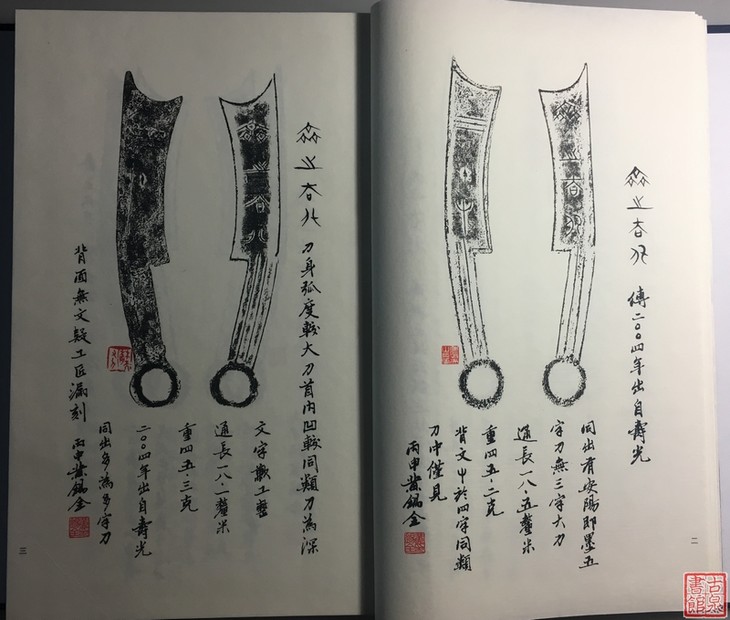 齊之夻化 傳二〇〇四年出自壽光
同出有安陽即墨五
字刀無三字大刀
通長一八·五釐米
重四五·二克
背文屮於四字同類
刀中僅見
丙申 錫金
二
齊之夻化 刀身弧度較大刀首内凹較同類刀為深
文字歉工整
通長一八·一釐米
重四五·三克
二〇〇四年出自壽光
同出多為多字刀
丙申 錫金
背面無文疑工匠漏刻
三
古泉書館